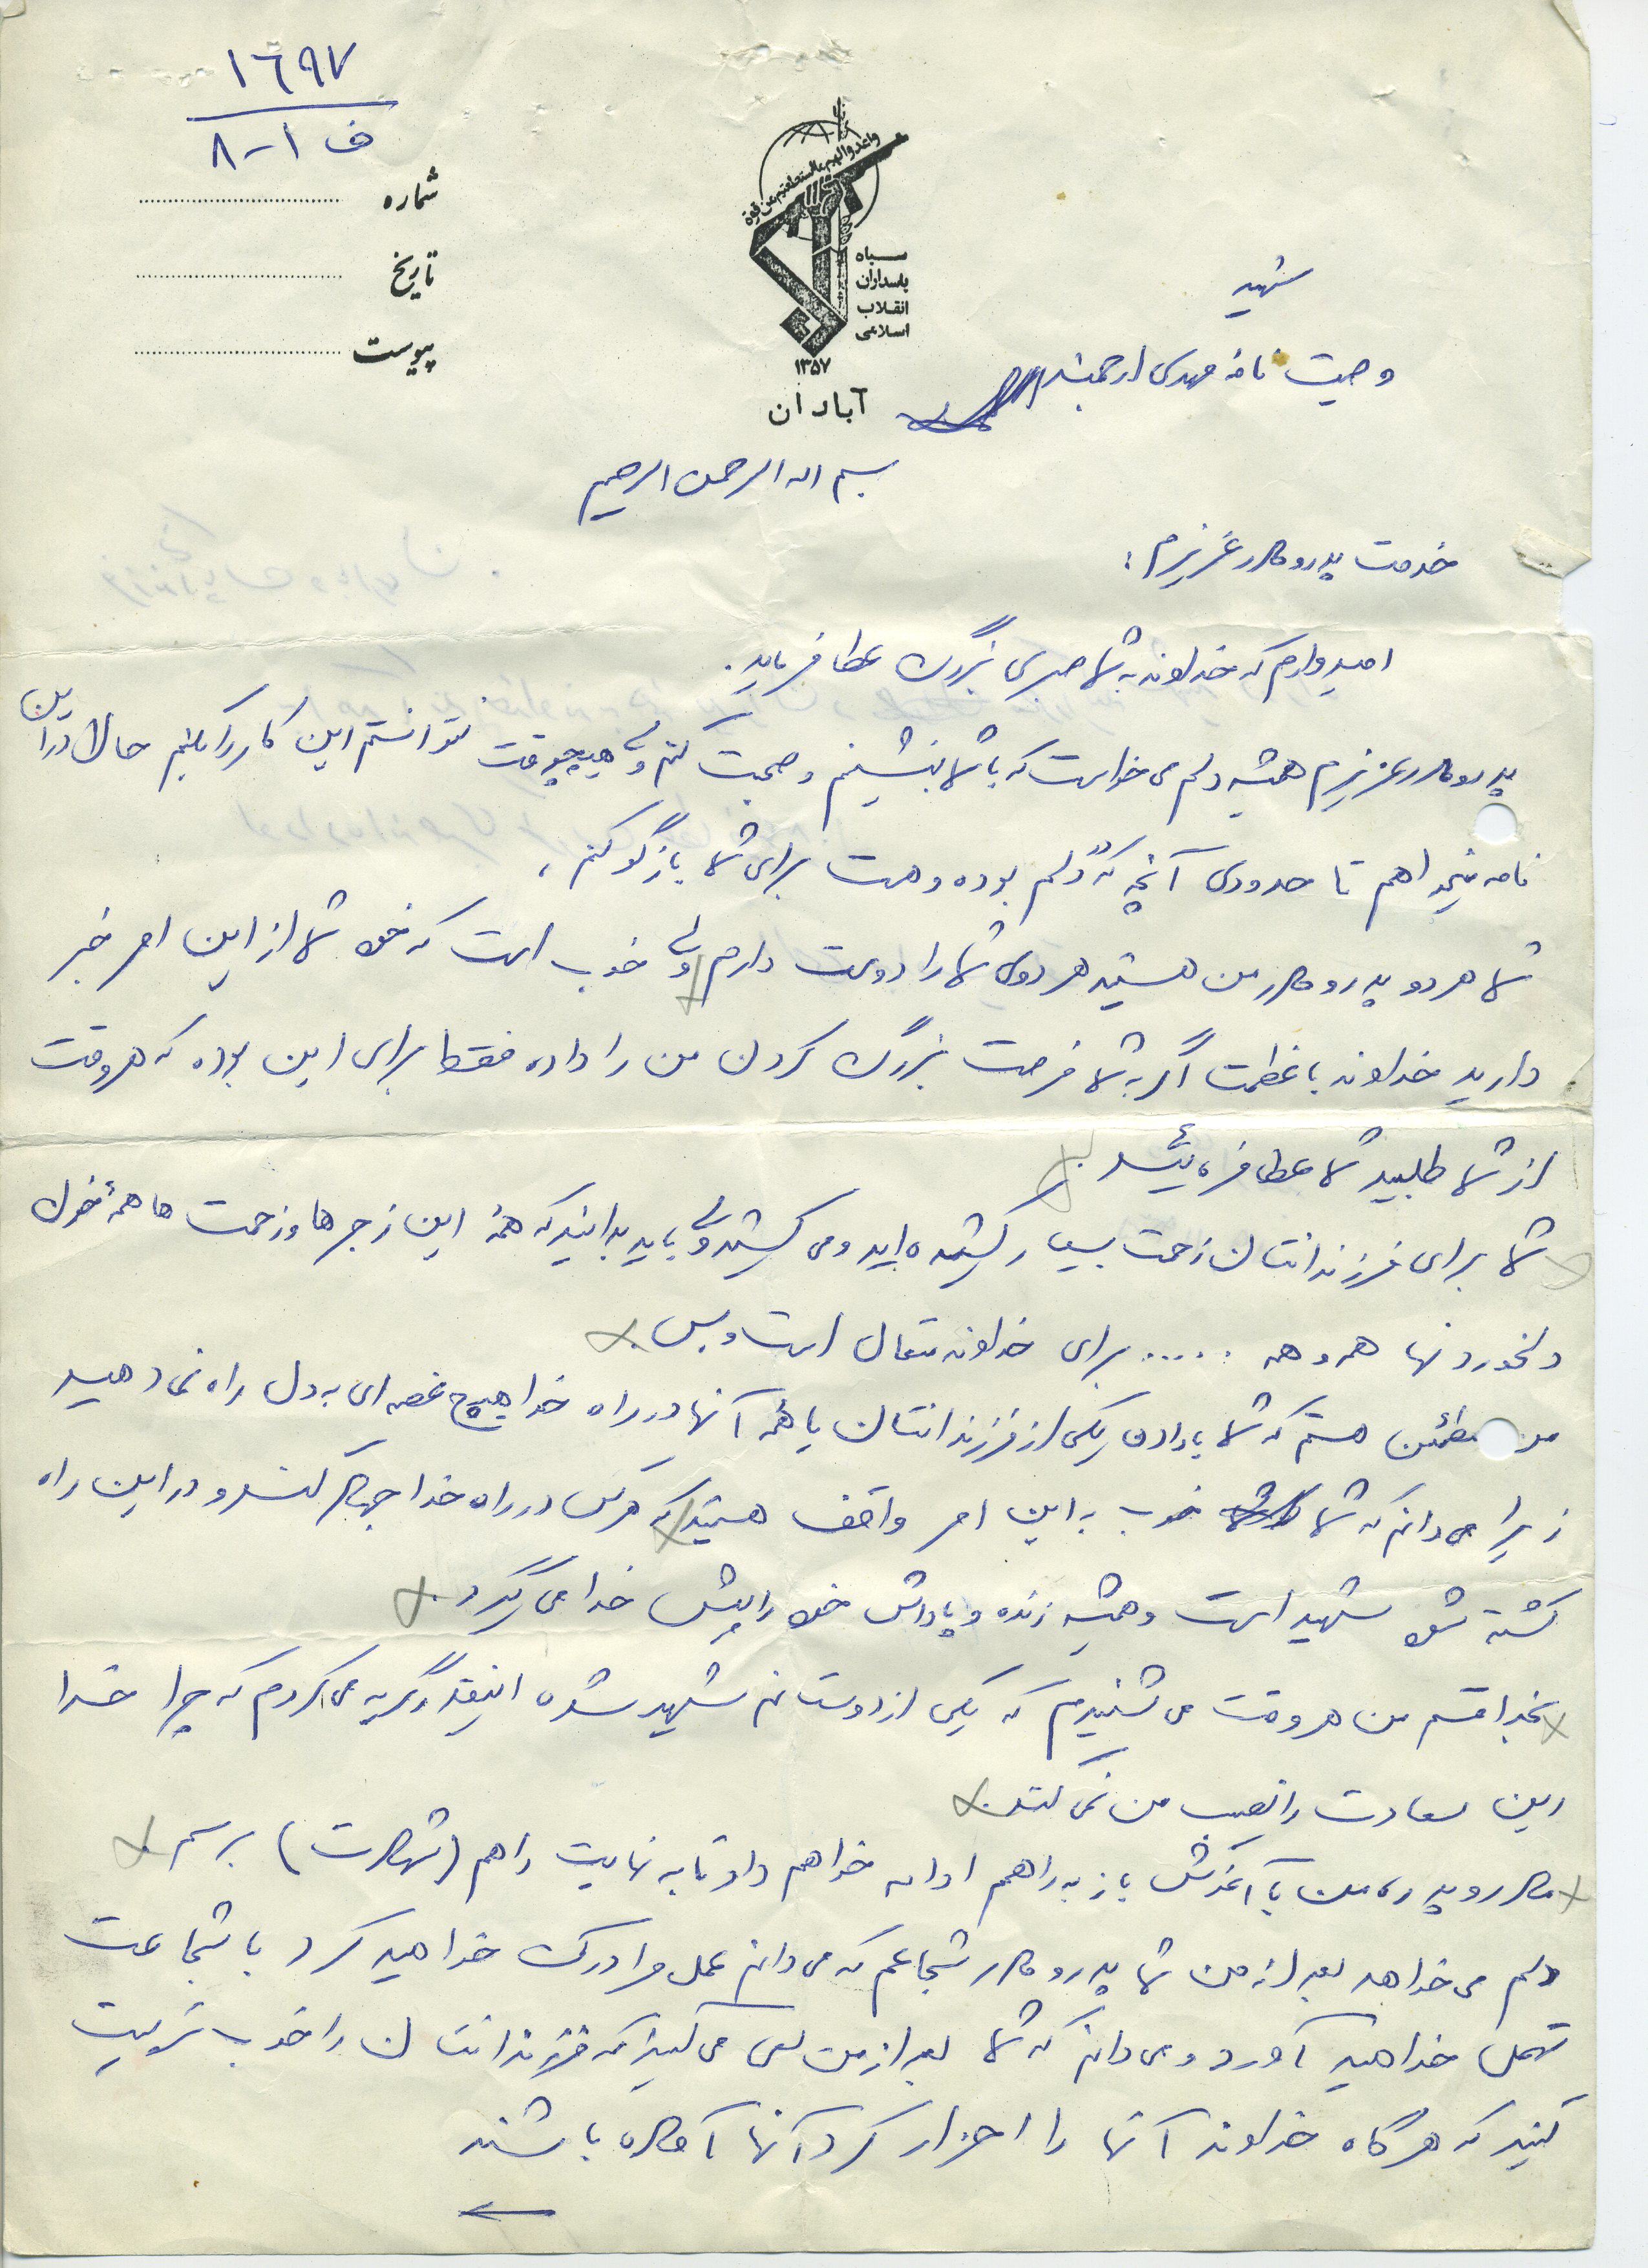 ١٦٩٧
ف ١-٨
شماره
تاریخ
پیوست
واعدوا لهم ما استطعتم من قوة
سپاه
پاسداران
انقلاب
اسلامی
۱۳۵۷
آبادان
شهید
وصیت نامه مهدی ارجمند
بسم اله الرحمن الرحیم
خدمت پدر و مادر عزیزم :
امیدوارم که خداوند به شما صبری بزرگ عطا فرماید.
پدر و مادر عزیزم همیشه دلم می خواست که با شما بنشینم و صحبت کنم ولی هیچوقت نتوانستم این کار را بکنم حال در این
نامه میخواهم تا حدودی آنچه که در دلم بوده و هست برای شما بازگو کنم ،
شما هر دو پدر و مادر من هستید هر دوی شما را دوست دارم ولی خوب است که خود شما از این امر خبر
دارید خداوند با عظمت اگر به شما فرصت بزرگ کردن من را داده فقط برای این بوده که هروقت
از شما طلبید شما عطا فرمائید.
شما برای فرزندانتان زحمت بسیار کشیده اید و می کشید ولی باید بدانید که همه این زجرها و زحمت ها همهٔ خون
دلخوردنها همه و همه ..... برای خداوند متعال است و بس.
من مطمئن هستم که شما با دادن یکی از فرزندانتان یا همه آنها در راه خدا هیچ غصه ای به دل راه نمی دهید
زیرا می دانم که شما خوب به این امر واقف هستید که هرکس در راه خدا جهاد کند و در این راه
کشته شود شهید است و همیشه زنده و پاداش خود را پیش خدا می گیرد.
بخدا قسم من هروقت می شنیدم که یکی از دوستانم شهید شده اینقدر گریه می کردم که چرا خدا
این سعادت را نصیب من نمی کند.
مادر و پدرم من با آغوش باز به راهم ادامه خواهم داد تا به نهایت راهم (شهادت) برسم.
دلم می خواهد بعد از من شما پدر و مادر شجاعم که می دانم عمل مرا درک خواهید کرد با شجاعت
تحمل خواهید آورد و می دانم که شما بعد از من سعی می کنید که فرزندانتان را خوب تربیت
کنید که هرگاه خداوند آنها را احزار کرد آنها آماده باشند